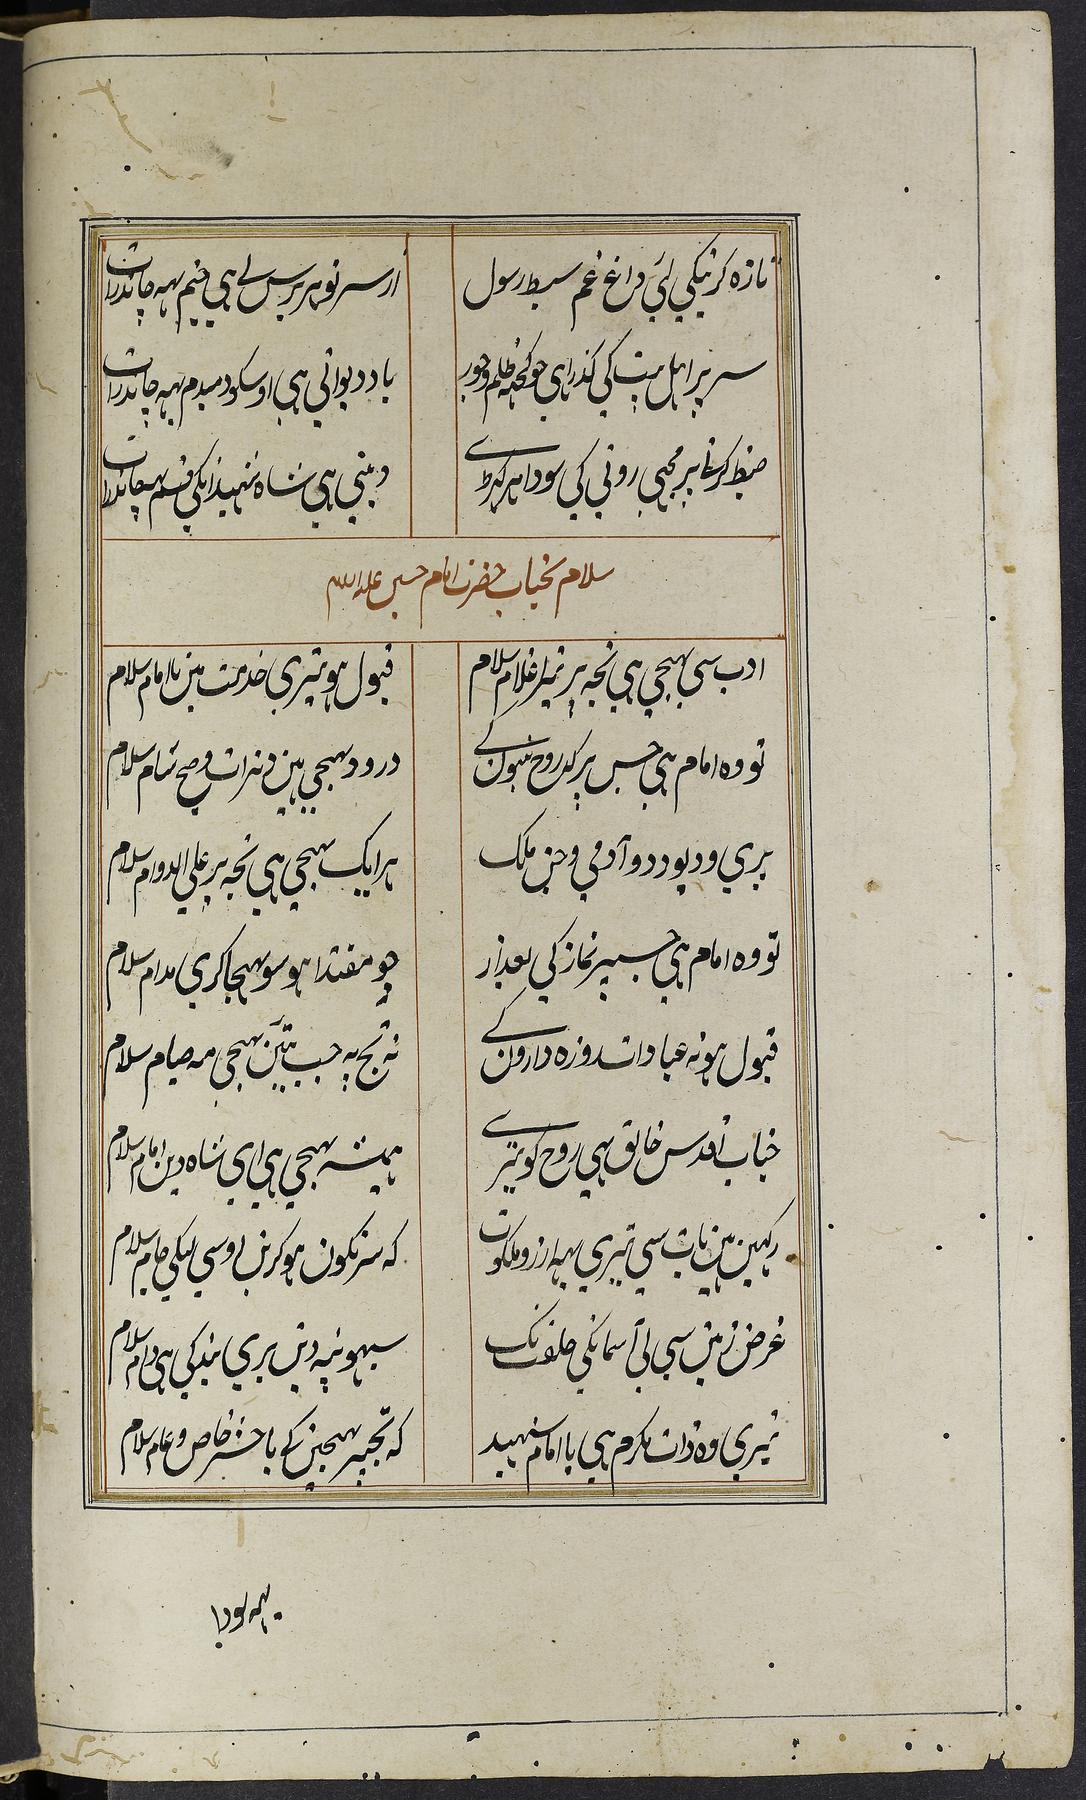 تازه کرنیکی لئی داغ غم سبط رسول
از سر نو هر برس لے هی جنم یهه چاندرات
سر پر اهل بیت کی گذرا هی جو کچهه ظلم و جور
یاد دیواتی هی اوسکو دمبدم یهه چاندرات
ضبط کر مجهی رونی کی سودا هر گهڑے
دیتی هی شاه شهیدانکی قسم یهه چاندرات
سلام بجناب حضرت امام حسین علیه السلام
ادب سی بهیجی هی تجه پر تیرا غلام سلام
قبول هو تیری خدمت مین یا امام سلام
تو وه امام هی جس پر که روح نبیون کے
درود بهیجی هین دنرات و صبح تمام سلام
پری و دیو و دد و آدمی و جن ملک
هرایک بهیجی هی تجه پر علی الدوام سلام
تو وه امام هی جسپر نماز کی بعد از
جو مقتدا هو سو بهیجا کری مدام سلام
قبول هو نه عبادات روزه دارون کے
نه تج په جب تئین بهیجی مه صیام سلام
جناب اقدس خالق بهی روح کو تیرے
همیشه بهیجی هی ای شاه دین امام سلام
رکهین هین بات سی تیری یهه آرزو ملکوت
که سرنگون هو کرین اوسی لیکی جام سلام
غرض زمین سی لی آسمانکی خلقت تک
سبهونپه دین بری بندگی هی دام سلام
تیری وه ذات مکرم هی یا امام شهید
که تجپر بهیجین کے تا حشر خاص و عام سلام
یهه سودا